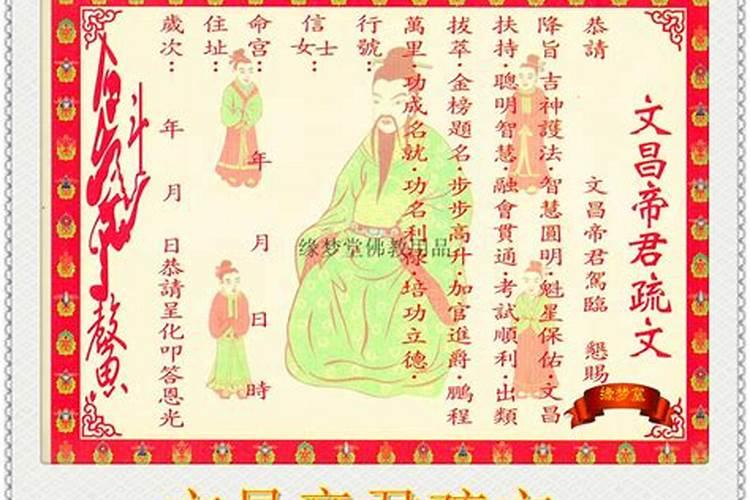 文昌帝君疏文
恭請 文昌帝君駕臨 懇賜
降旨·吉神護法·智慧圓明·魁星保佑·文昌
扶持·聰明智慧·融會貫通·考試順利·出類
拔萃·金榜題名·步步高升·加官進爵·鵬程
萬里·功成名就·功名利祿·培功立德·
行號：
信士女：
命宮： 年 月 日 時
住址：
歲次： 年 月 日恭請呈化叩答恩光
缘梦堂佛教用品
缘梦堂
文昌帝君疏文